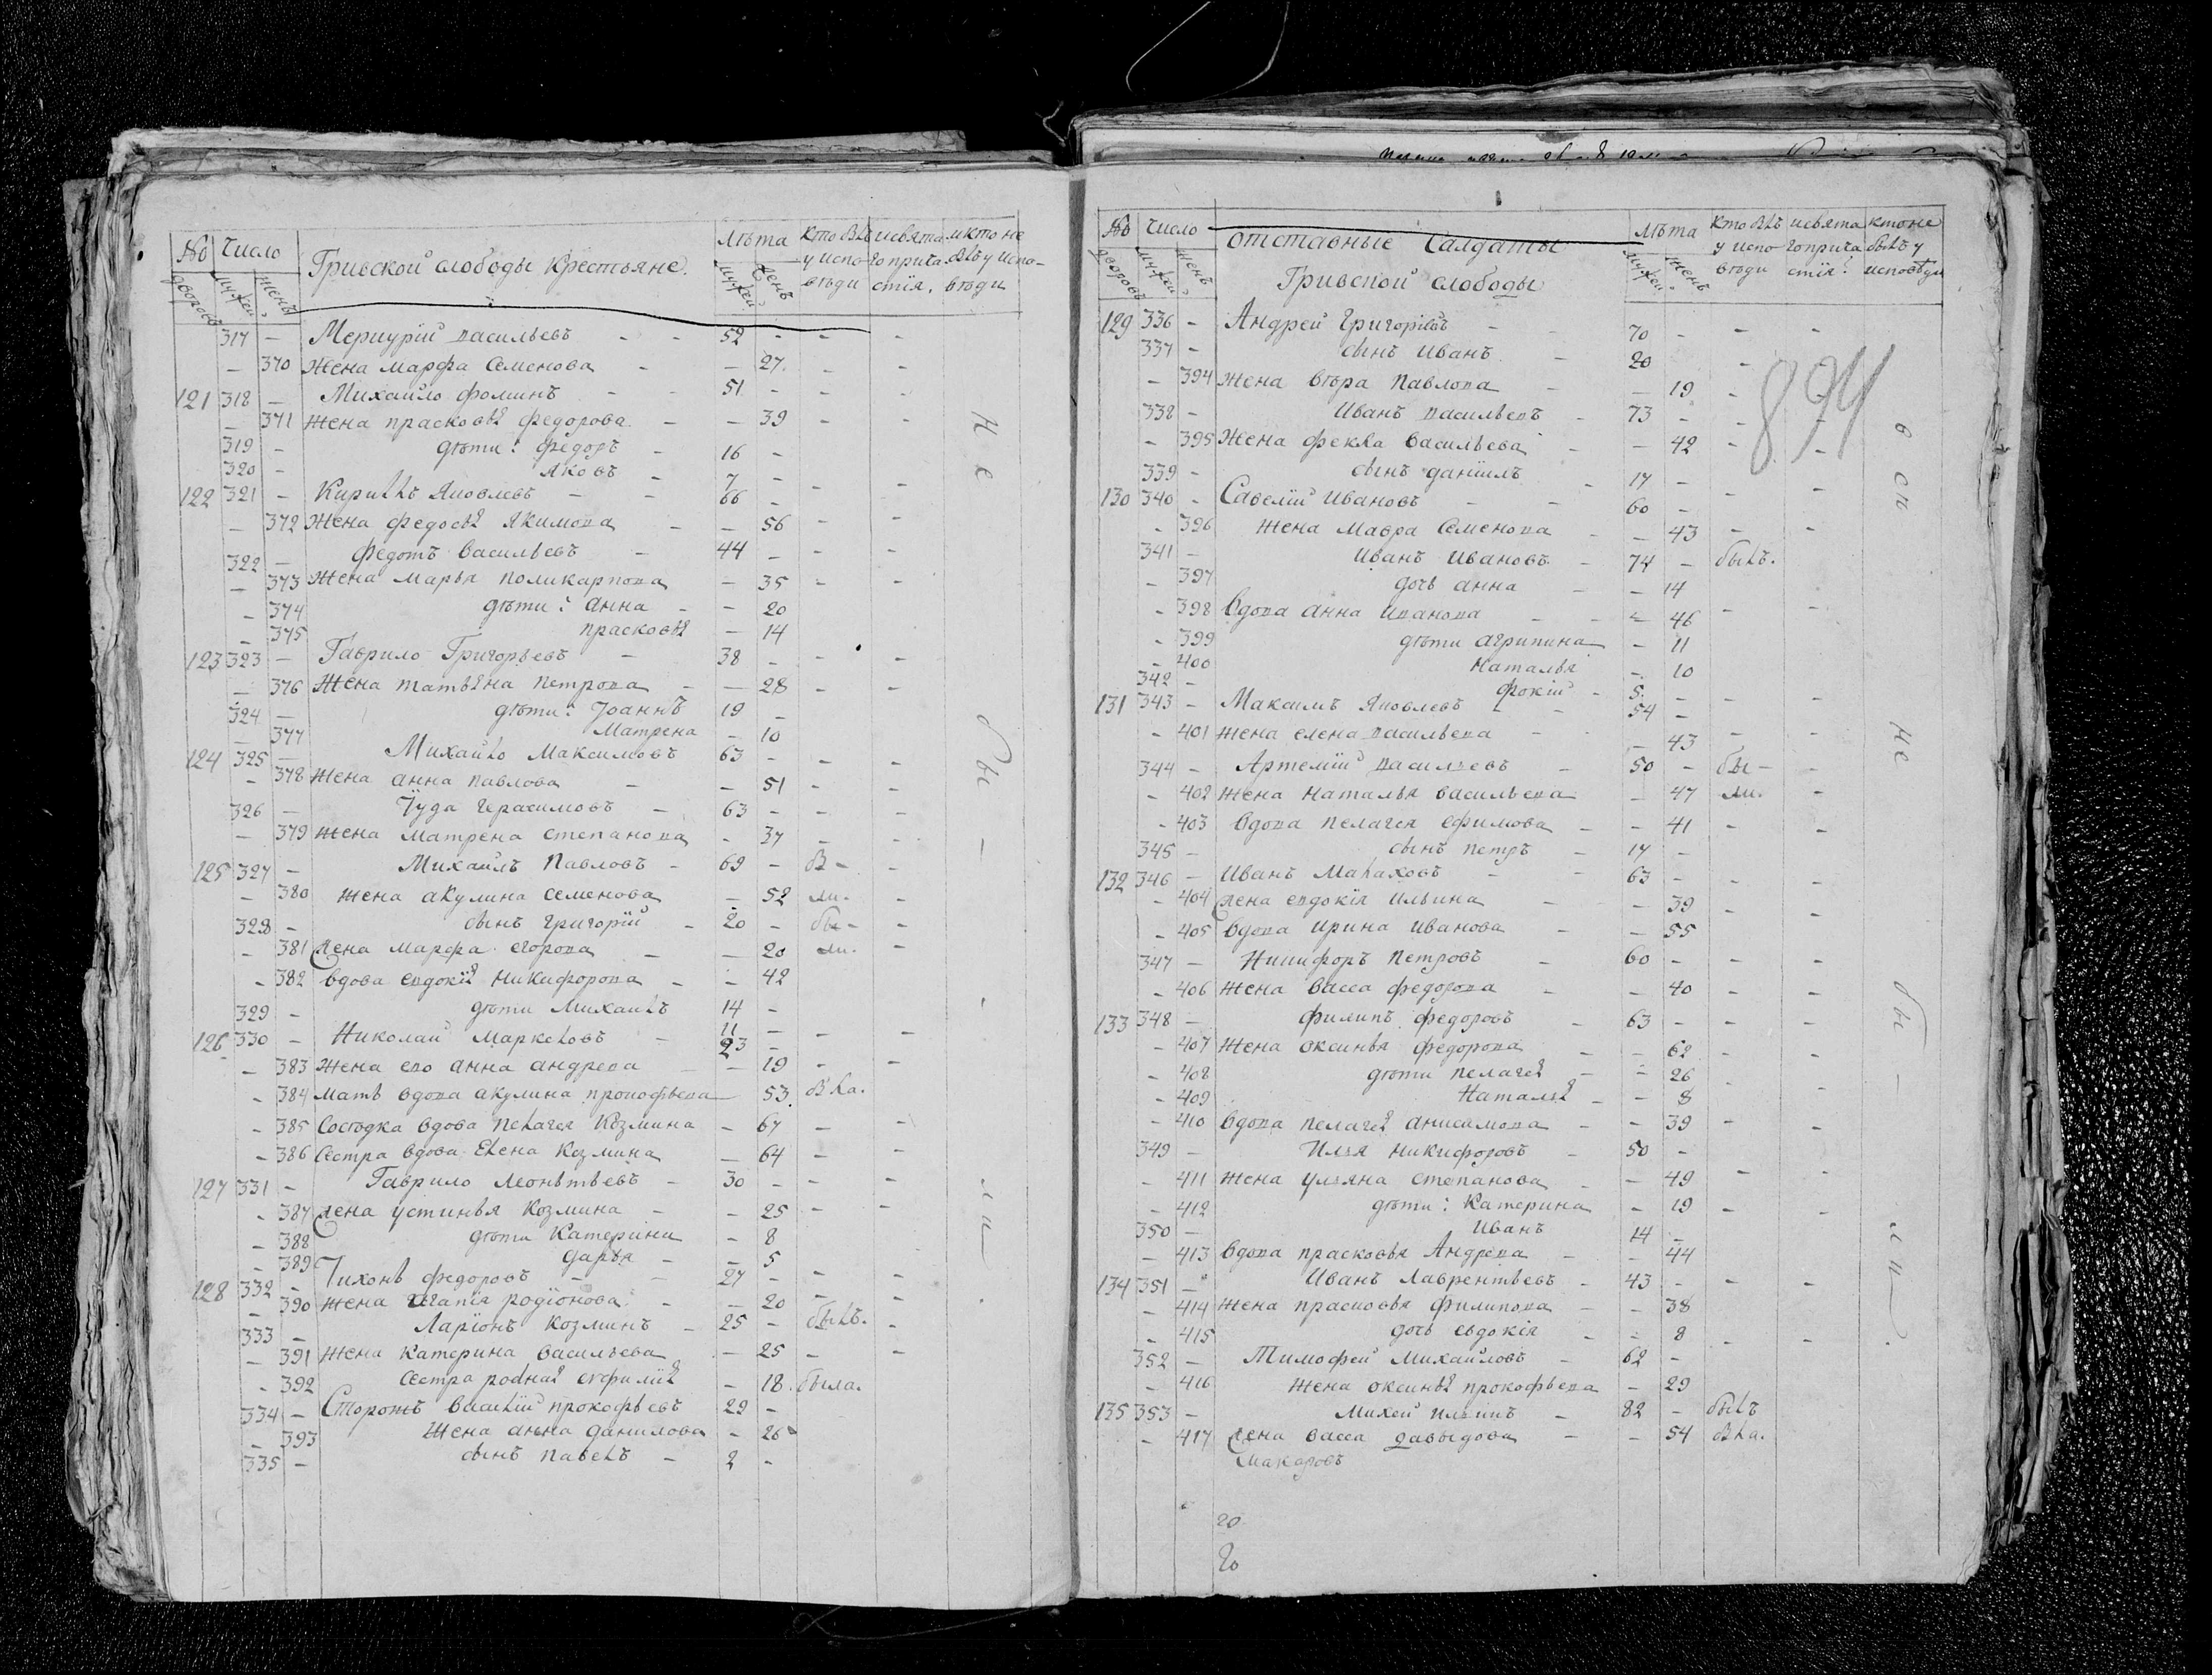 № Число Гривской слободы Крестьяне. Лѣта кто былъ у исповѣди и святаго причастія. и кто не былъ у исповѣди
дворовъ мужей женъ мужей женъ
317 — Меркурій васильевъ 52
370 Жена марфа Семенова 27
121 318 Михайло фоминъ 51
371 Жена прасковья федорова 39
319 дѣти: федоръ 16
320 яковъ 7
122 321 Кирилъ Яковлевъ 66
372 Жена федосья Якимова 56
322 федотъ васильевъ 44
373 Жена марья поликарпова 35
374 дѣти: анна 20
375 прасковья 14
123 323 Гаврило Григорьевъ 38
376 Жена татьяна петрова 28
324 дѣти: Іоаннъ 19
377 Матрена 10
124 325 Михайло Максимовъ 63
378 Жена анна павлова 51
326 Іуда герасимовъ 63
379 Жена матрена степанова 37
125 327 Михаилъ Павловъ 69 бы-
380 жена акулина семенова 52 ли.
328 сынъ григорій 20 бы-
381 жена марфа егорова 20 ли.
382 вдова евдокія никифорова 42
329 дѣти михаилъ 14
11
126 330 Николай маркеловъ 23
383 жена ево анна андреева 19
384 мать вдова акулина прокофьева 53 была.
385 Сосѣдка вдова пелагея Козмина 67
386 Сестра вдова Елена Козмина 64
127 331 Гаврило леоньтьевъ 30
387 жена устинья Козмина 25
388 дѣти Катерина 8
389 дарья 5
128 332 Тихонъ федоровъ 27
390 жена агапія родіонова 20
333 Ларіонъ козминъ 25 былъ.
391 жена Катерина васильева 25
392 Сестра родная евфимія 18 была.
334 Сторожъ василій прокофьевъ 29
393 жена анна данилова 26
335 сынъ павелъ 2
не бы- ли.
№ число отставные Салдаты Лѣта кто былъ у исповѣди и святаго причастія: кто не былъ у исповѣди
дворовъ мужей женъ Гривской слободы мужей женъ
894
129 336 Андрей григорьевъ 70
337 сынъ иванъ 20
394 жена вѣра павлова 19
338 иванъ васильевъ 73
395 жена фекла васильева 42
339 сынъ даніилъ 17
130 340 Савелій ивановъ 60
396 жена мавра семенова 43
341 иванъ ивановъ 74 былъ.
397 дочь анна 14
398 вдова анна иванова 46
399 дѣти агрипина 11
400 наталья 10
342 фокій 5
131 343 Максимъ Яковлевъ 54
401 жена елена васильева 43
344 Артемій васильевъ 50 бы-
402 жена наталья васильева 47 ли.
403 вдова пелагея ефимова 41
345 сынъ петръ 17
132 346 иванъ малаховъ 63
404 жена евдокія ильина 39
405 вдова ирина иванова 55
347 никифоръ петровъ 60
406 жена васса федорова 40
133 348 филипъ федоровъ 63
407 жена оксинья федорова 62
408 дѣти пелагея 26
409 наталья 8
410 вдова пелагея анисимова 39
349 илья никифоровъ 50
411 жена ульяна степанова 49
412 дѣти: Катерина 19
350 иванъ 14
413 вдова прасковья Андреева 44
134 351 иванъ лаврентьевъ 43
414 жена прасковья филипова 38
415 дочь евдокія 8
352 Тимофей михайловъ 62
416 жена оксинья прокофьева 29
135 353 михей ильинъ 82 былъ
417 жена васса давыдова 54 была.
макаровъ
20
20
не бы- ли.